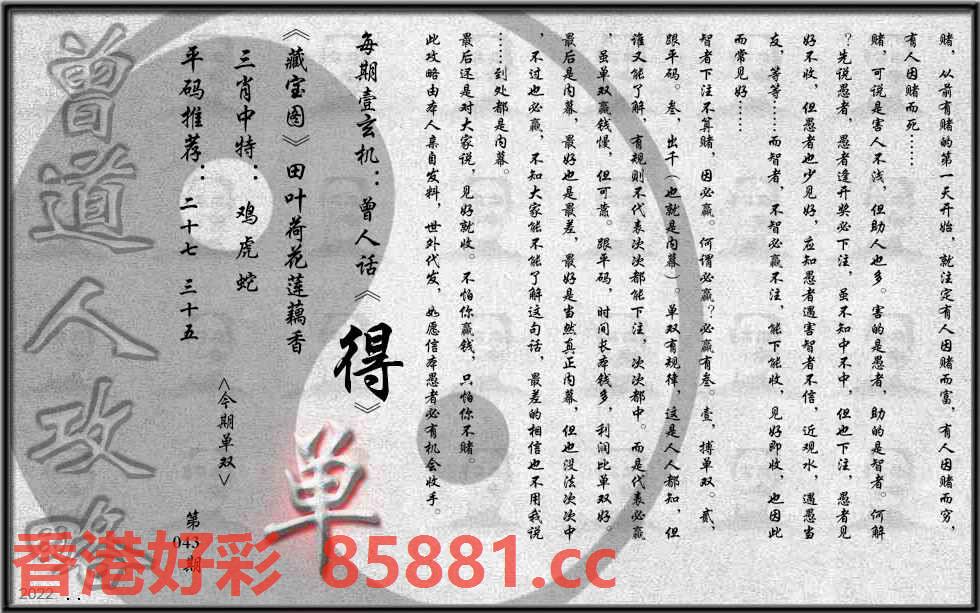 赌，从前有赌的第一天开始，就注定有人因赌而富，有人因赌而穷，
有人因赌而死……
赌，可说是害人不浅，但助人也多。害的是愚者，助的是智者。何解
？先说愚者，愚者逢开奖必下注，虽不知中不中，但也下注，愚者见
好不收，但愚者也少见好，应知愚者遇害智者不信，近观水，遇愚当
友，等等……而智者，不智必赢不注，能下能收，见好即收，也因此
而常见好……
智者下注不算赌，因必赢。何谓必赢？必赢有叁。壹，搏单双。贰，
跟平码。叁，出千（也就是内幕）。单双有规律，这是人人都知，但
谁又能了解，有规则不代表次次都能下注，次次都中。而是代表必赢
，虽单双赢钱慢，但可靠。跟平码，时间长本钱多，利润比单双好。
最后是内幕，最好也是最差，最好是当然真正内幕，但也没法次次中
，不过也必赢，不知大家能不能了解这句话，最差的相信也不用我说
……到处都是内幕。
最后还是对大家说，见好就收。不怕你赢钱，只怕你不赌。
此攻略由本人亲自发料，世外代发，如愿信本愚者必有机会收手。
每期壹玄机：曾人话《得》
《藏宝图》田叶荷花莲藕香
单
三肖中特：鸡虎蛇
<今期单双>
平码推荐：二十七 三十五
第
043
期
曾道人攻略
香港好彩 85881.cc
2022